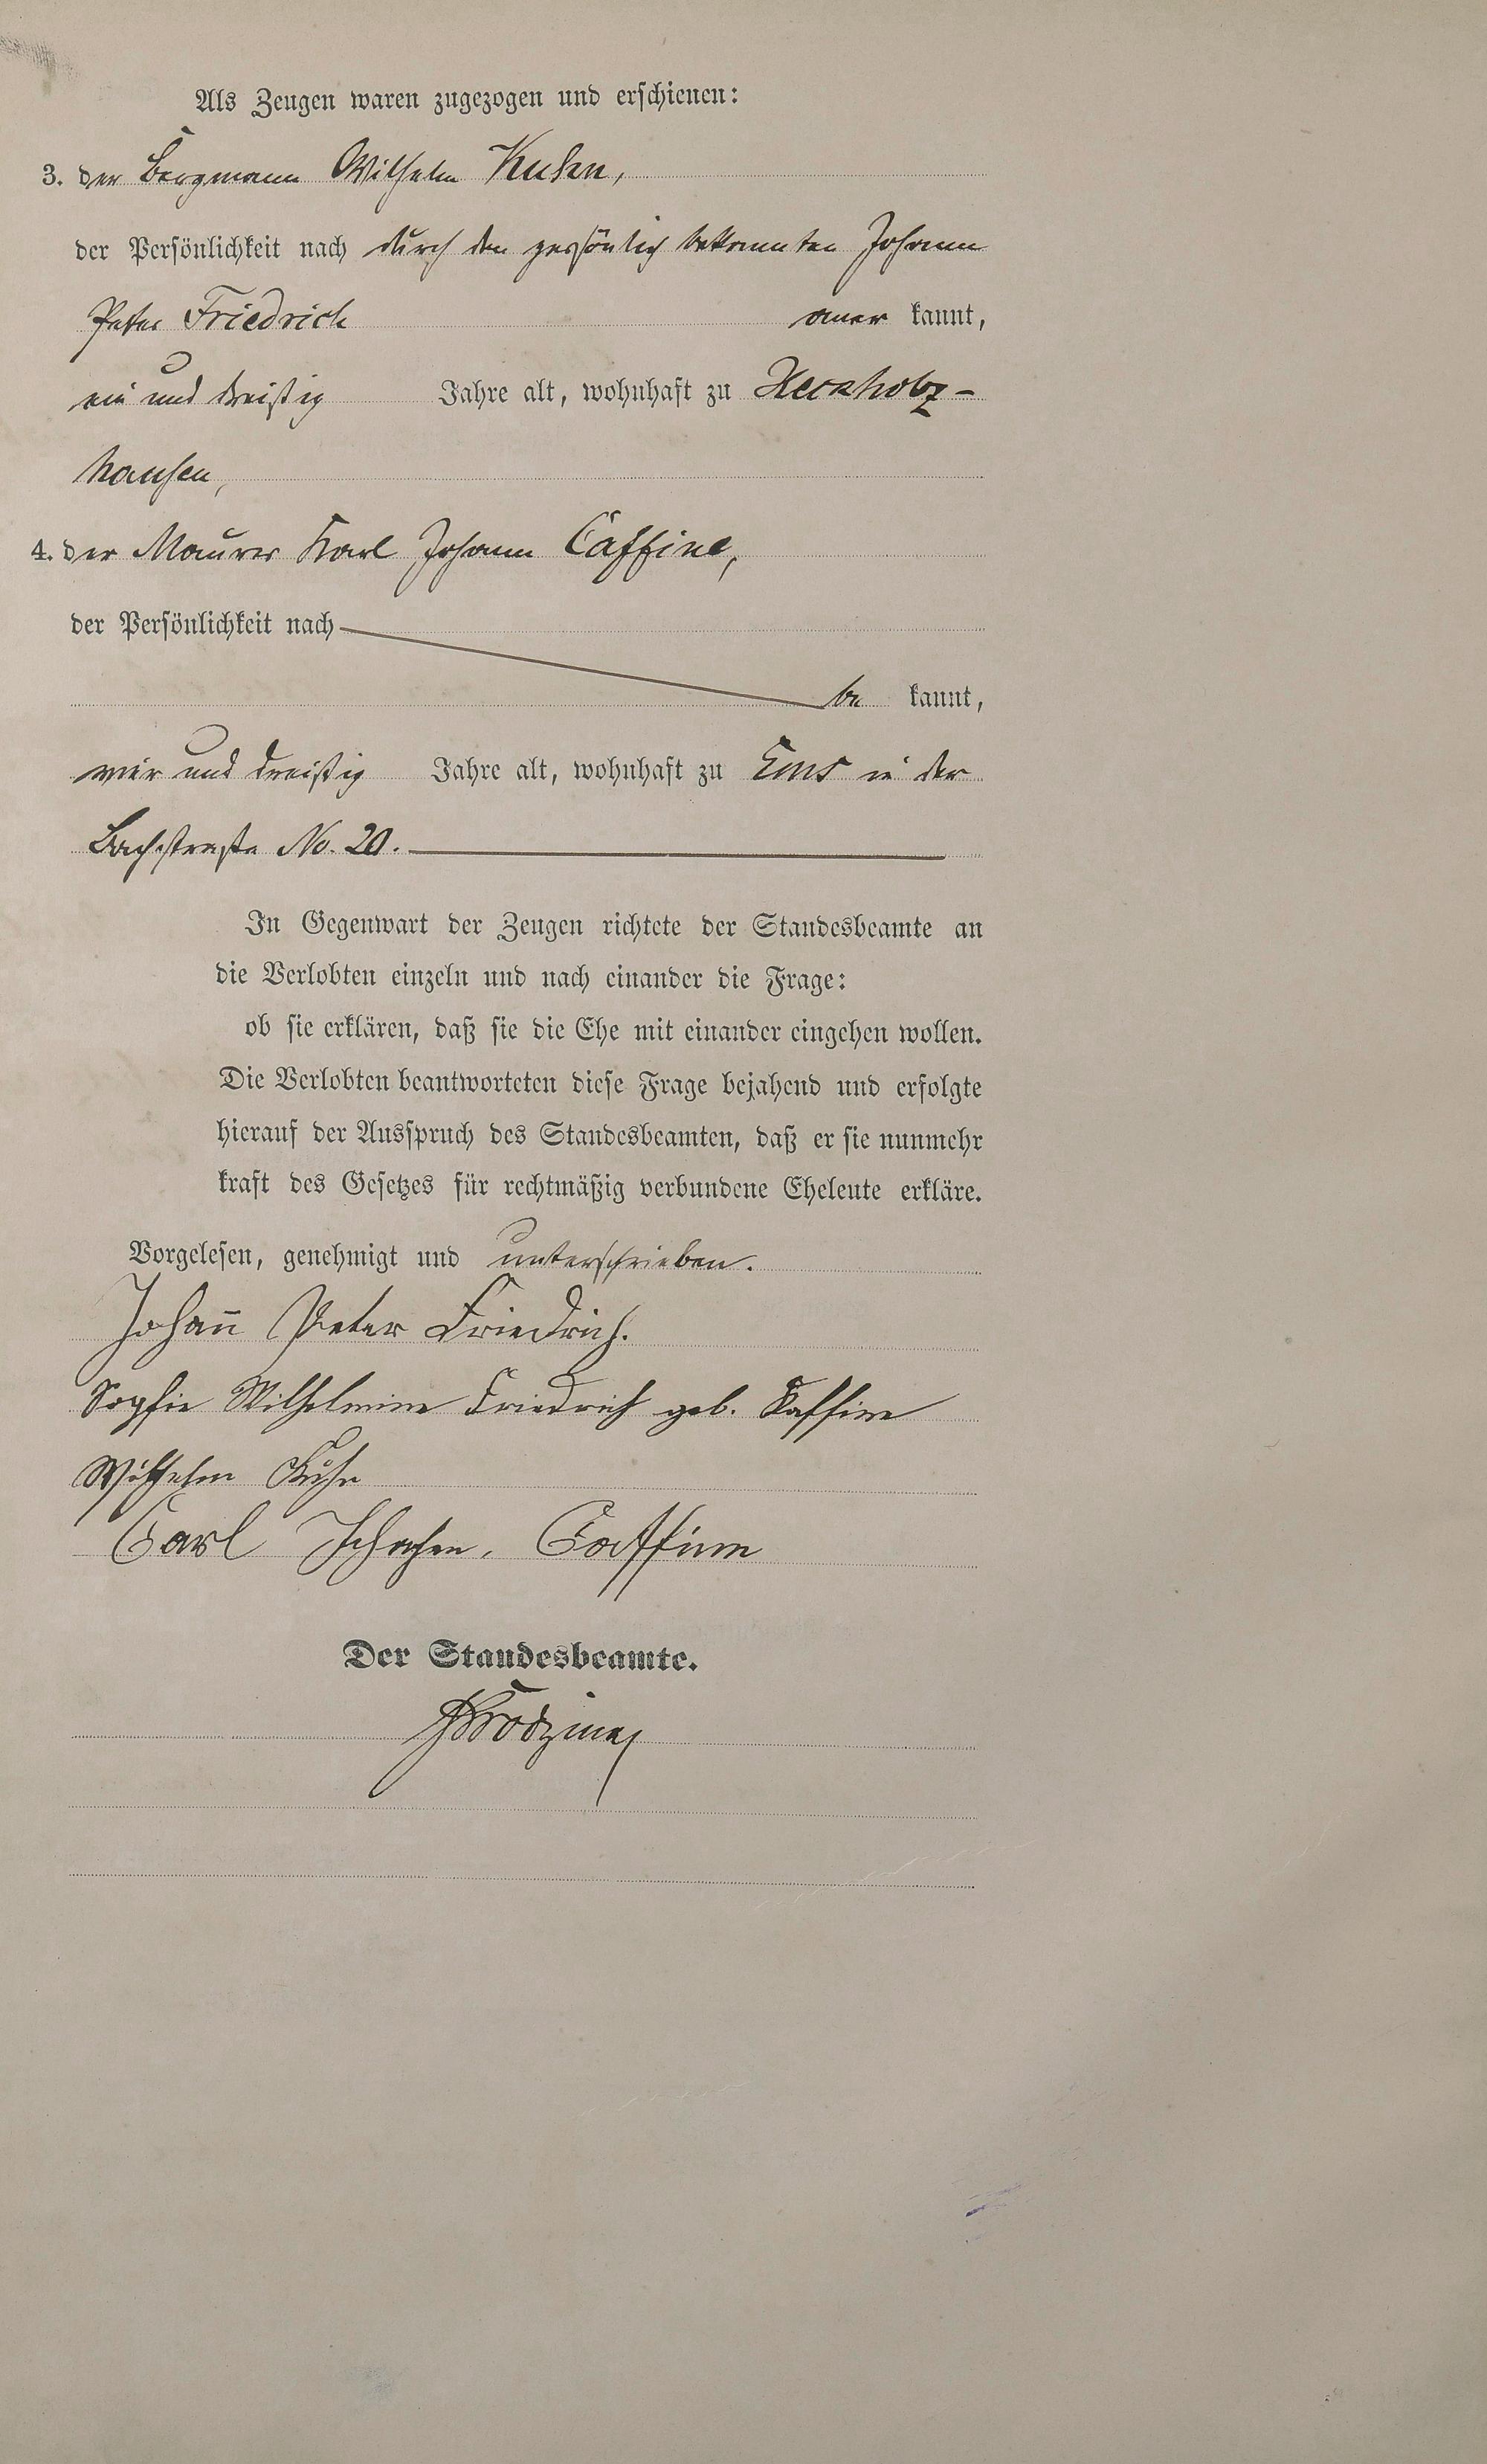 Als Zeugen waren zugezogen und erschienen:
3. der Bergmann Wilhelm Kuhn,
der Persönlichkeit nach durch den persönlich bekannten Johann
Peter Friedrich aner kannt,
ein und dreißig Jahre alt, wohnhaft zu Herzholz-
hausen,
4. der Maurer Karl Johann Caffine,
der Persönlichkeit nach
be kannt,
vier und dreißig Jahre alt, wohnhaft zu Ems in der
Bachstraße No. 20.
In Gegenwart der Zeugen richtete der Standesbeamte an
die Verlobten einzeln und nach einander die Frage:
ob sie erklären, daß sie die Ehe mit einander eingehen wollen.
Die Verlobten beantworteten diese Frage bejahend und erfolgte
hierauf der Ausspruch des Standesbeamten, daß er sie nunmehr
kraft des Gesetzes für rechtmäßig verbundene Eheleute erkläre.
Vorgelesen, genehmigt und unterschrieben.
Johann Peter Friedrich.
Sophie Wilhelmine Friedrich geb. Kaffine
Wilhelm Kuhn
Carl Caffine
Der Standesbeamte.